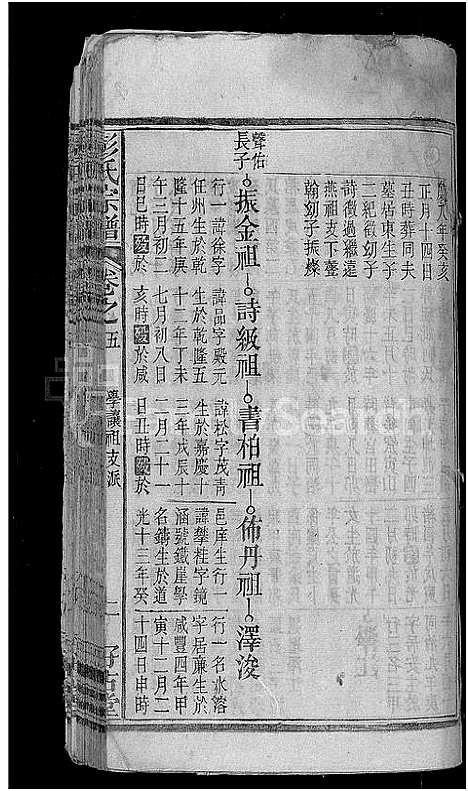 八年癸亥
正月十四日
丑時葬同夫
墓居東生子
二紀徵幼子
詩徵過繼遠
燕祖支下鳌
翰幼子振燦
聲佑
長子
振金祖
詩級祖
書柏祖
佈丹祖
澤浚
行一諱徐字
任州生於乾
隆十五年庚
午三月初二
日巳時殁於
諱品字殿元
生於乾隆五
十二年丁未
七月初八日
亥時殁於咸
諱松字茂青
生於嘉慶十
三年戊辰十
二月二十一
日丑時殁於
邑庠生行一
諱攀桂字鏡
涵號鐵崖學
名鑄生於道
光十三年癸
行一名水溶
字居亷生於
咸豐四年甲
寅十二月二
十四日申時
彭氏宗譜
卷之五
學讓祖支派
二